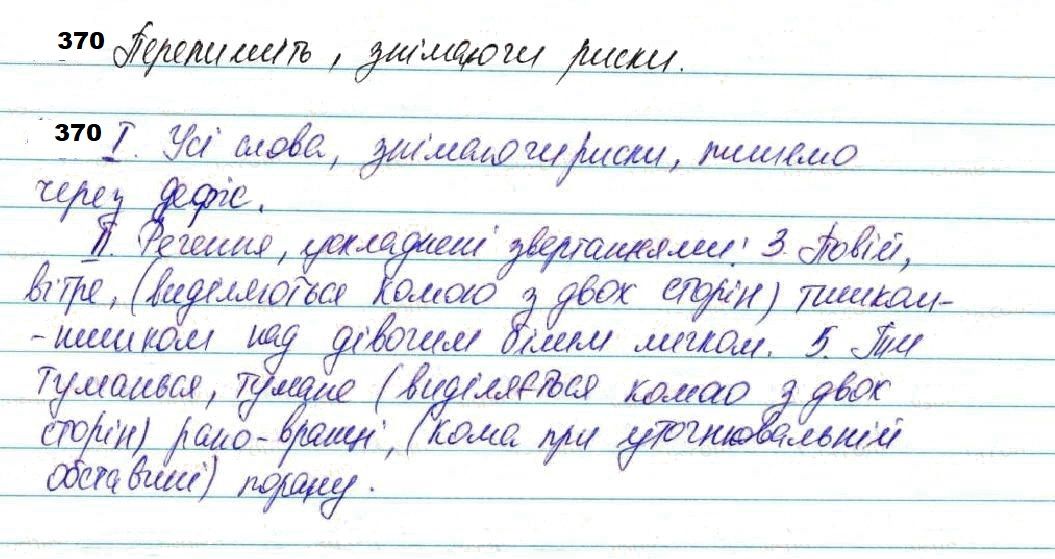 370 Перепишіть, знімаючи риски.
370 І. Усі слова, знімаючи риски, пишемо
через дефіс.
ІІ. Речення, ускладнені звертаннями: 3. Повій,
вітре, (виділяються комою з двох сторін) тишком-
-нишком над дівочим білим личком. 5. Ти
туманься, тумане (виділяється комою з двох
сторін) рано-вранці, (кома при уточнювальній
обставині) порану.